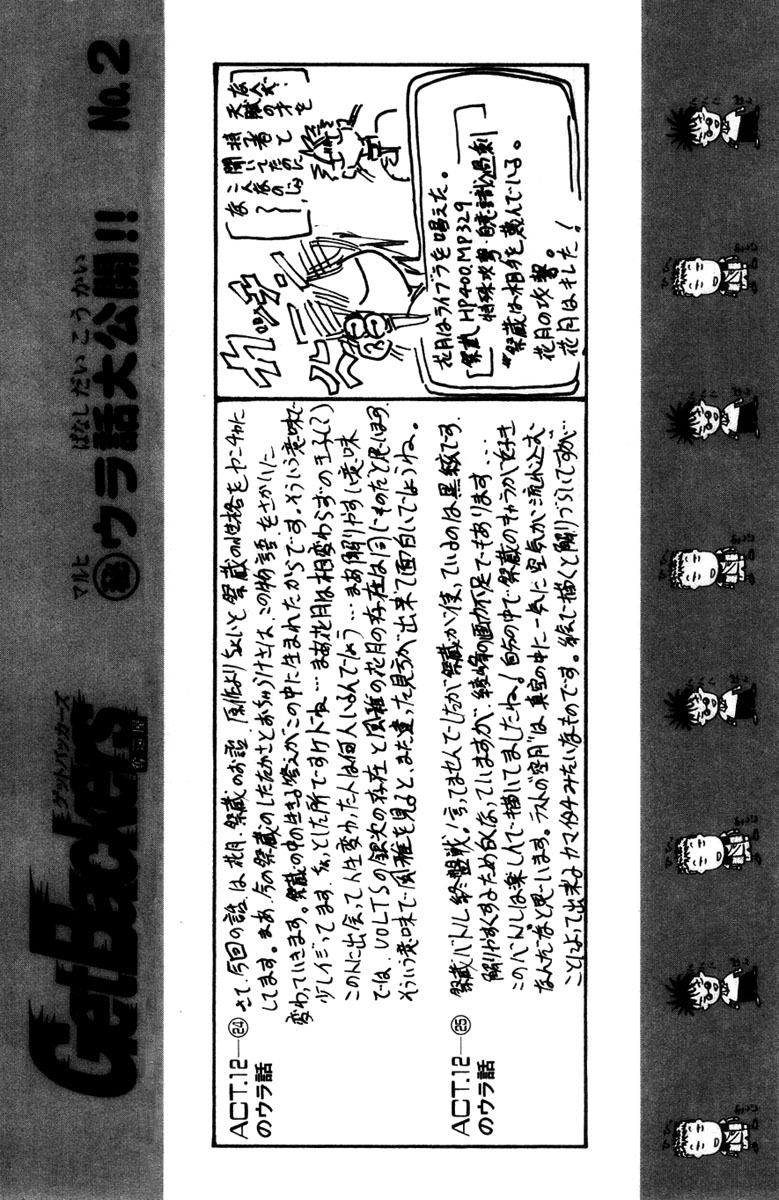 GetBackers
ゲットバッカーズ
奪還屋
マルヒ ばなし だい こう かい
㊙ウラ話大公開!! No.2
ACT.12—㉔
のウラ話
さて、今回の話は花月・祭蔵のお話。原作よりちょいと祭蔵の性格をヤンチャに
してます。まあ、今の祭蔵のしたたかさとおちゃらけさは、この物語をさかいに
変わっていきます。祭蔵の中の生きる答えがこの中に生まれたからです。そういう意味で
少しイジってます。ちょっとした所ですけドね…まあ花月は相変わらずの王子(?)
この人に出会って人生変わった人は何人いるんでしょう…まあ解りやすい意味
では、VOLTSの銀次の存在と風雅の花月の存在は同じものだと思います。
そういう意味で風雅を見ると、また違った見方が出来て面白いでしょうね。
ACT.12—㉕
のウラ話
祭蔵バトル終盤戦!言ってませんでしたが祭蔵が使っているのは黒絃です。
解りやすくするため白くなっていますが、綾峰の画力不足でもあります…
このバトルは楽しんで描けてましたね!自分の中で祭蔵のキャラが好き
なんだなと思います。ラストの"空月"は真空の中に一気に空気が流れ込む
ことによって出来るカマイタチみたいなものです。絵で描くと解りづらいですが…
天賦の才を
持つ者と
聞いていたのに
花月はライブラを唱えた。
祭蔵 HP400,MP329
特殊攻撃・自意識過剰
祭蔵は相手を蔑んでいる。
花月の攻撃。
花月はキレた!